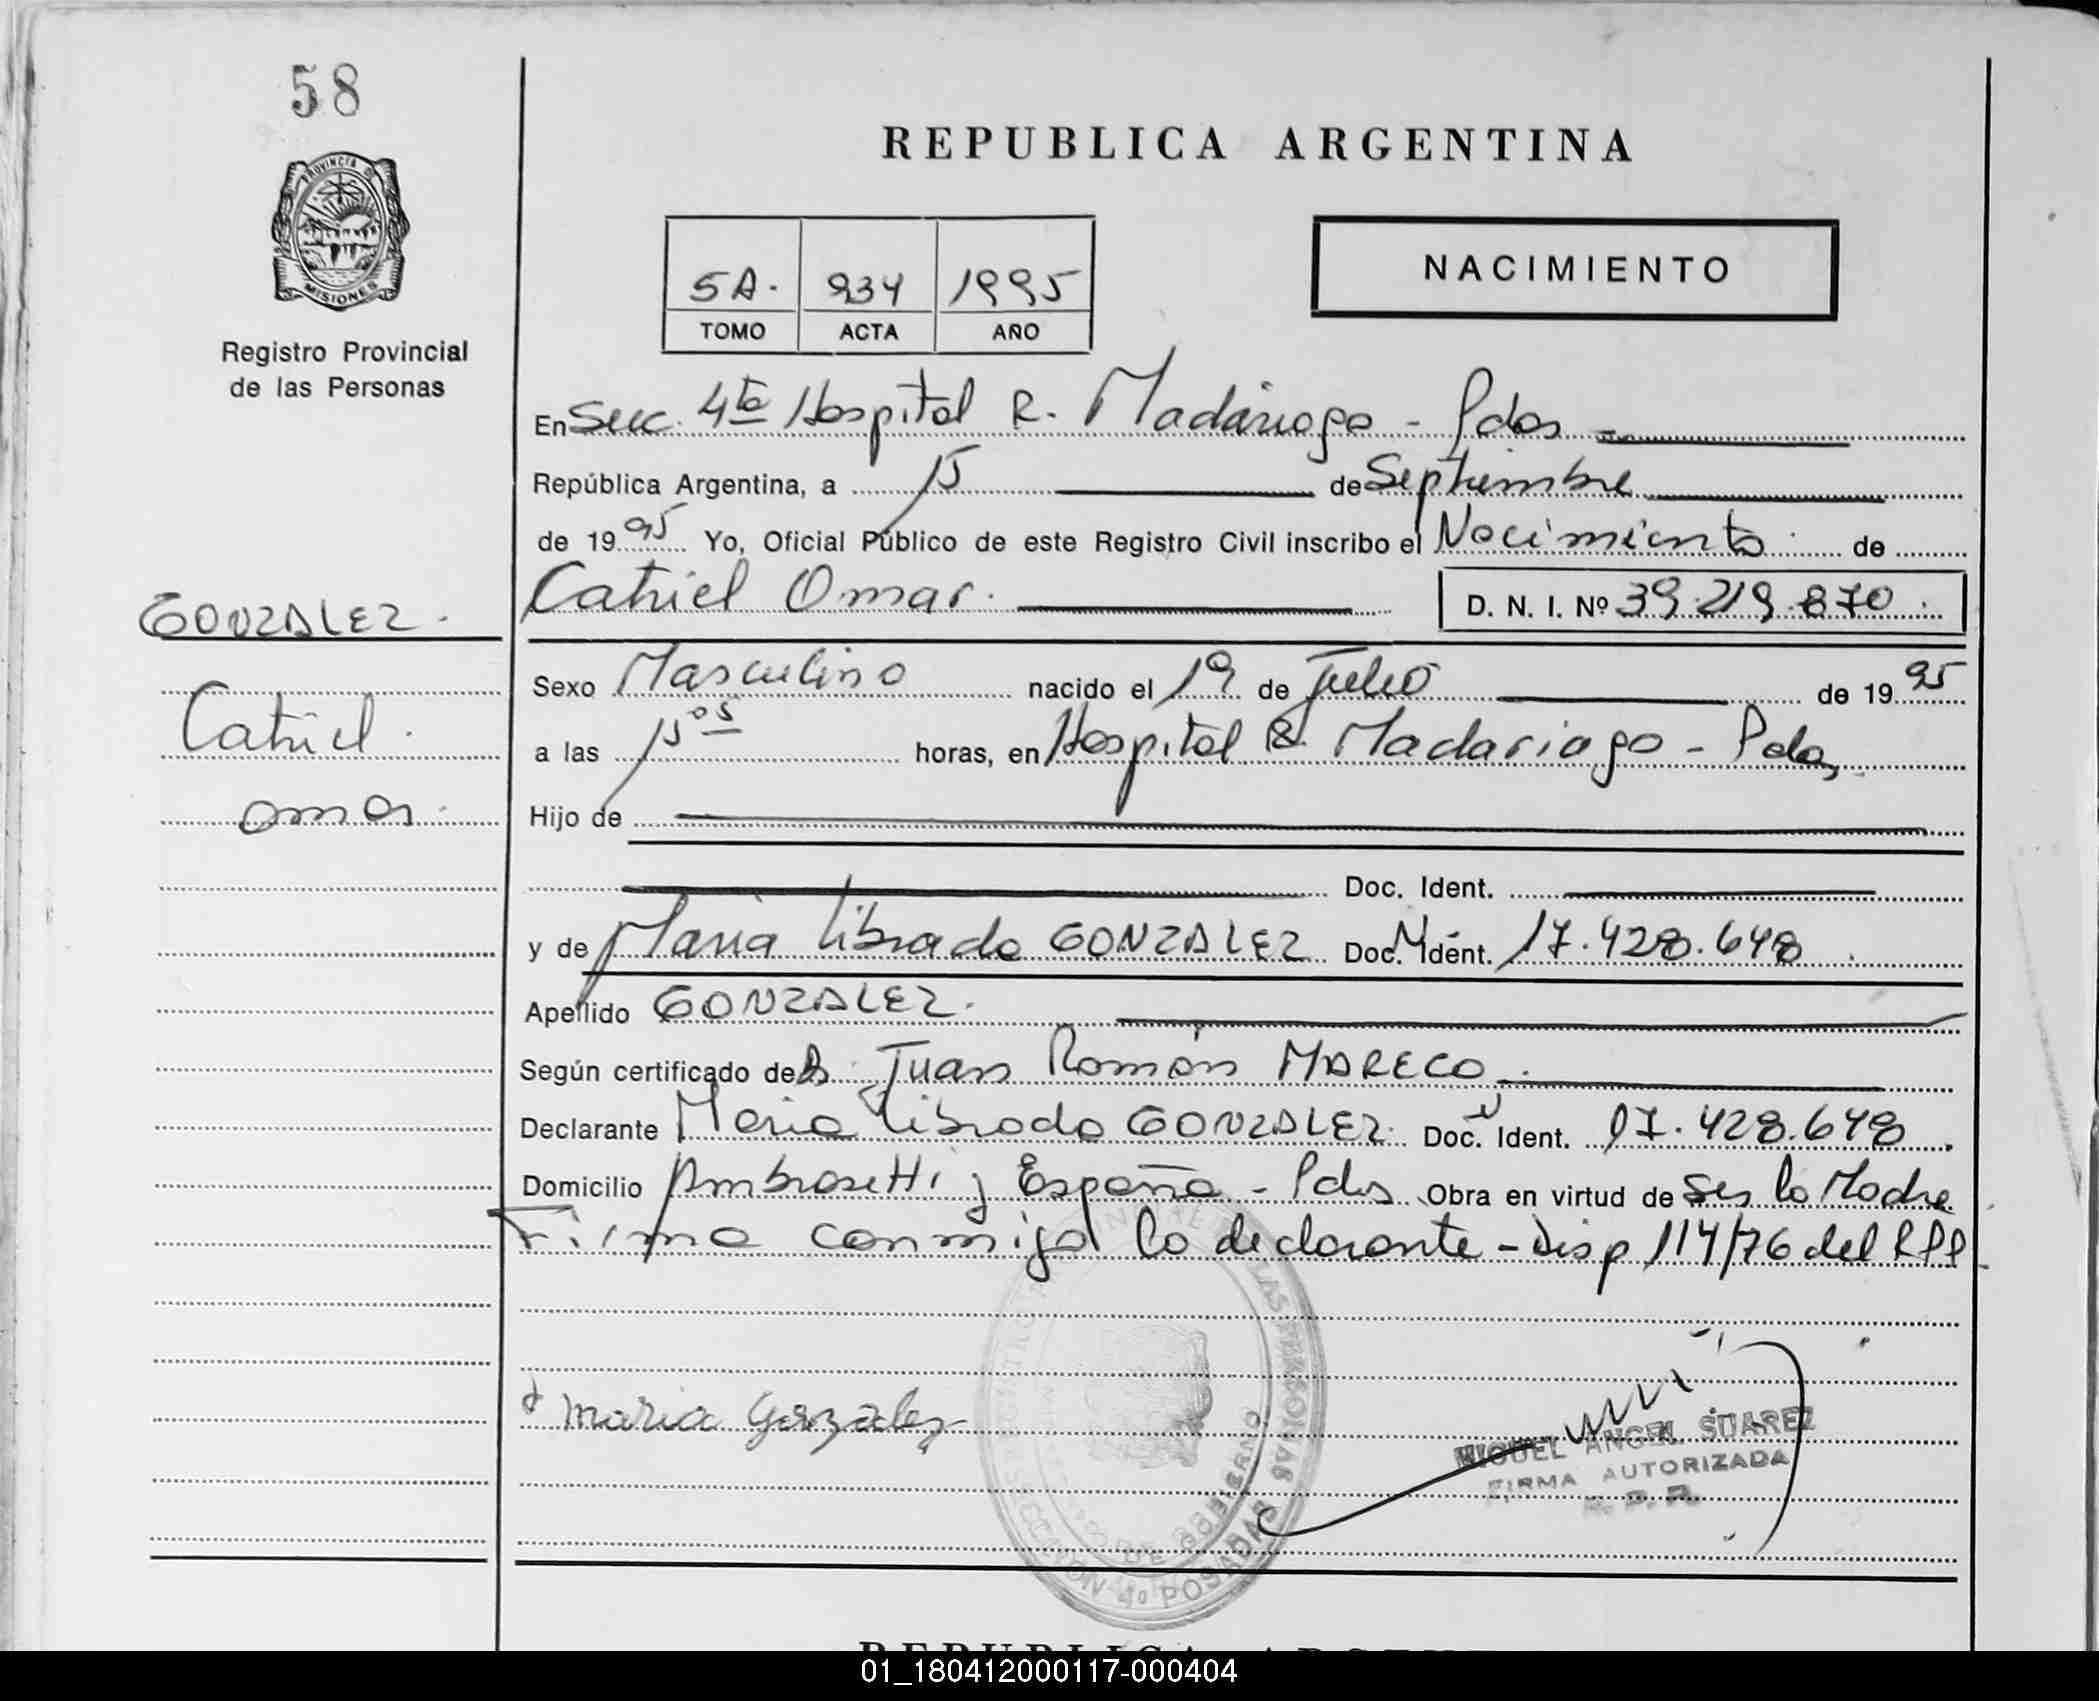 58
PROVINCIA DE
MISIONES
Registro Provincial
de las Personas
REPUBLICA ARGENTINA
5A. 934 1995
TOMO ACTA AÑO
NACIMIENTO
En Secc. 4ta Hospital R. Madariaga - Pdas
República Argentina, a 15 de Septiembre
de 1995 Yo, Oficial Público de este Registro Civil inscribo el Nacimiento de
GONZALEZ.
Catriel Omar. D. N. I. Nº 39.219.870.
Catriel.
Omar.
Sexo Masculino nacido el 19 de Julio de 1995
a las 15 05 horas, en Hospital R. Madariaga - Pdas
Hijo de
Doc. Ident.
y de Maria Librada GONZALEZ Doc. Ident. 17.428.648
Apellido GONZALEZ.
Según certificado de Juan Román MARECO.
Declarante Maria Librada GONZALEZ. Doc. Ident. 17.428.648.
Domicilio Ambrosetti y España - Pdas Obra en virtud de Ser la Madre
Firma conmigo la declarante - Disp 114/76 del RPP
Maria Gonzalez
MIGUEL ANGEL SUAREZ
FIRMA AUTORIZADA
R. P. P.
LAS PERSONAS
DE GOBIERNO
SECCION 4º POSADAS
01_180412000117-000404